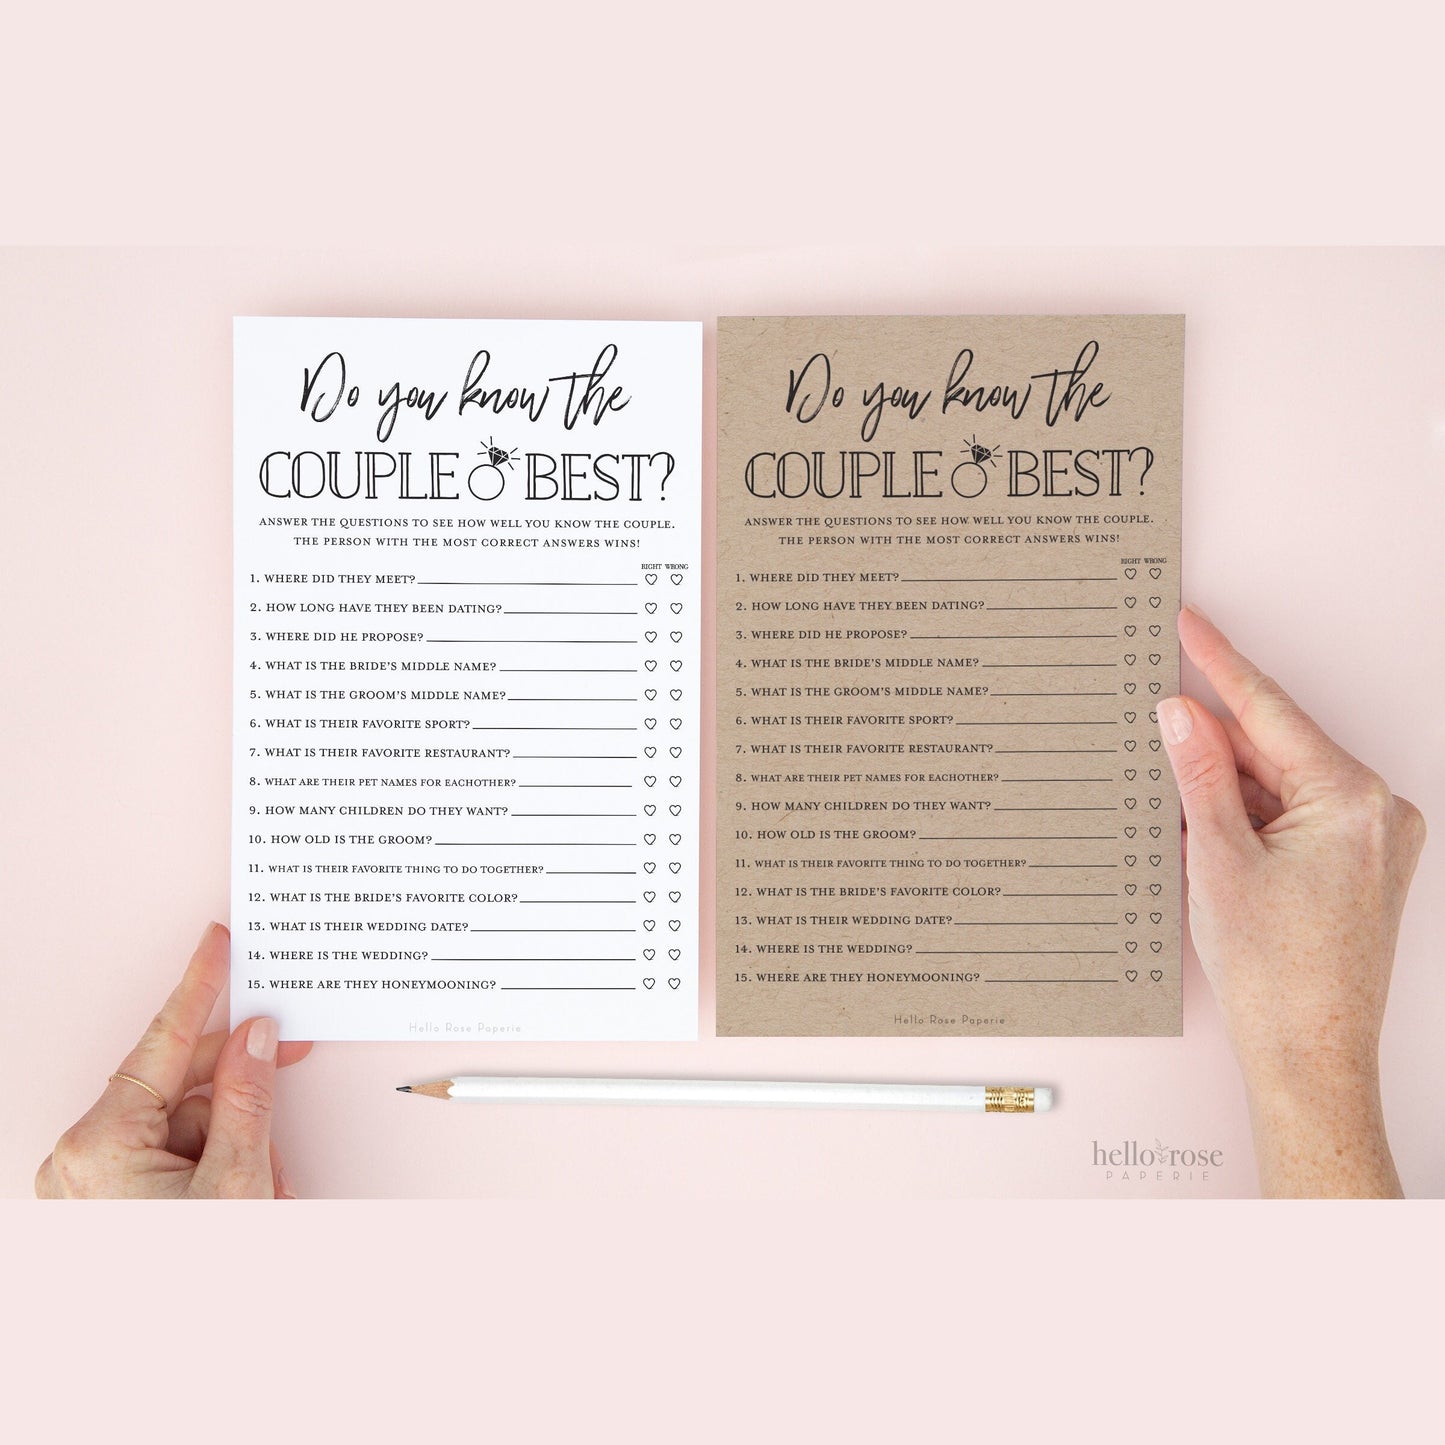 Do you know the
COUPLE BEST?
ANSWER THE QUESTIONS TO SEE HOW WELL YOU KNOW THE COUPLE.
THE PERSON WITH THE MOST CORRECT ANSWERS WINS!
RIGHT WRONG
1. WHERE DID THEY MEET?
2. HOW LONG HAVE THEY BEEN DATING?
3. WHERE DID HE PROPOSE?
4. WHAT IS THE BRIDE'S MIDDLE NAME?
5. WHAT IS THE GROOM'S MIDDLE NAME?
6. WHAT IS THEIR FAVORITE SPORT?
7. WHAT IS THEIR FAVORITE RESTAURANT?
8. WHAT ARE THEIR PET NAMES FOR EACHOTHER?
9. HOW MANY CHILDREN DO THEY WANT?
10. HOW OLD IS THE GROOM?
11. WHAT IS THEIR FAVORITE THING TO DO TOGETHER?
12. WHAT IS THE BRIDE'S FAVORITE COLOR?
13. WHAT IS THEIR WEDDING DATE?
14. WHERE IS THE WEDDING?
15. WHERE ARE THEY HONEYMOONING?
Hello Rose Paperie
Do you know the
COUPLE BEST?
ANSWER THE QUESTIONS TO SEE HOW WELL YOU KNOW THE COUPLE.
THE PERSON WITH THE MOST CORRECT ANSWERS WINS!
RIGHT WRONG
1. WHERE DID THEY MEET?
2. HOW LONG HAVE THEY BEEN DATING?
3. WHERE DID HE PROPOSE?
4. WHAT IS THE BRIDE'S MIDDLE NAME?
5. WHAT IS THE GROOM'S MIDDLE NAME?
6. WHAT IS THEIR FAVORITE SPORT?
7. WHAT IS THEIR FAVORITE RESTAURANT?
8. WHAT ARE THEIR PET NAMES FOR EACHOTHER?
9. HOW MANY CHILDREN DO THEY WANT?
10. HOW OLD IS THE GROOM?
11. WHAT IS THEIR FAVORITE THING TO DO TOGETHER?
12. WHAT IS THE BRIDE'S FAVORITE COLOR?
13. WHAT IS THEIR WEDDING DATE?
14. WHERE IS THE WEDDING?
15. WHERE ARE THEY HONEYMOONING?
Hello Rose Paperie
hello rose
PAPERIE